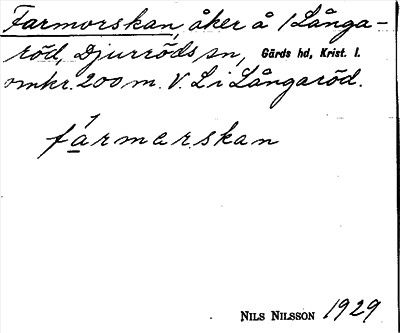 Farmorskan, åker å 1 Långa-
röd, Djurröds sn, Gärds hd, Krist. l.
omkr. 200 m. V. L i Långaröd.
fármarskan
NILS NILSSON 1929